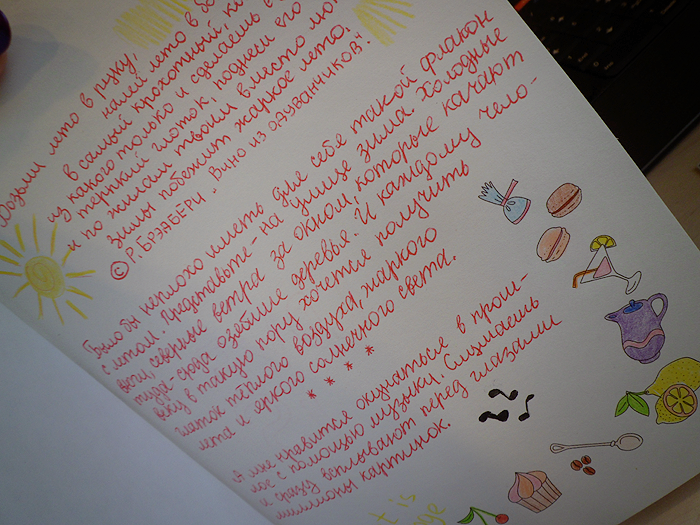 Возьми лето в руку,
налей лето в бо
в самый крохотный,
из какого только и сделаешь
терпкий глоток, поднеси его
и по жилам твоим вместо
зимы побежит жаркое лето.
© Р. БРЭДБЕРИ. "Вино из одуванчиков"
Было бы неплохо иметь для себя такой флакон
с летом. Представьте - на улице зима. Холодные
ветра, северные ветра за окном, которые качают
туда-сюда озябшие деревья. И каждому чело-
веку в такую пору хочется получить
глоток тёплого воздуха, жаркого
лета и яркого солнечного света.
* * * *
А мне нравится окунаться в прош-
лое с помощью музыки. Слушаешь
и сразу всплывают перед глазами
миллионы картинок.
it is